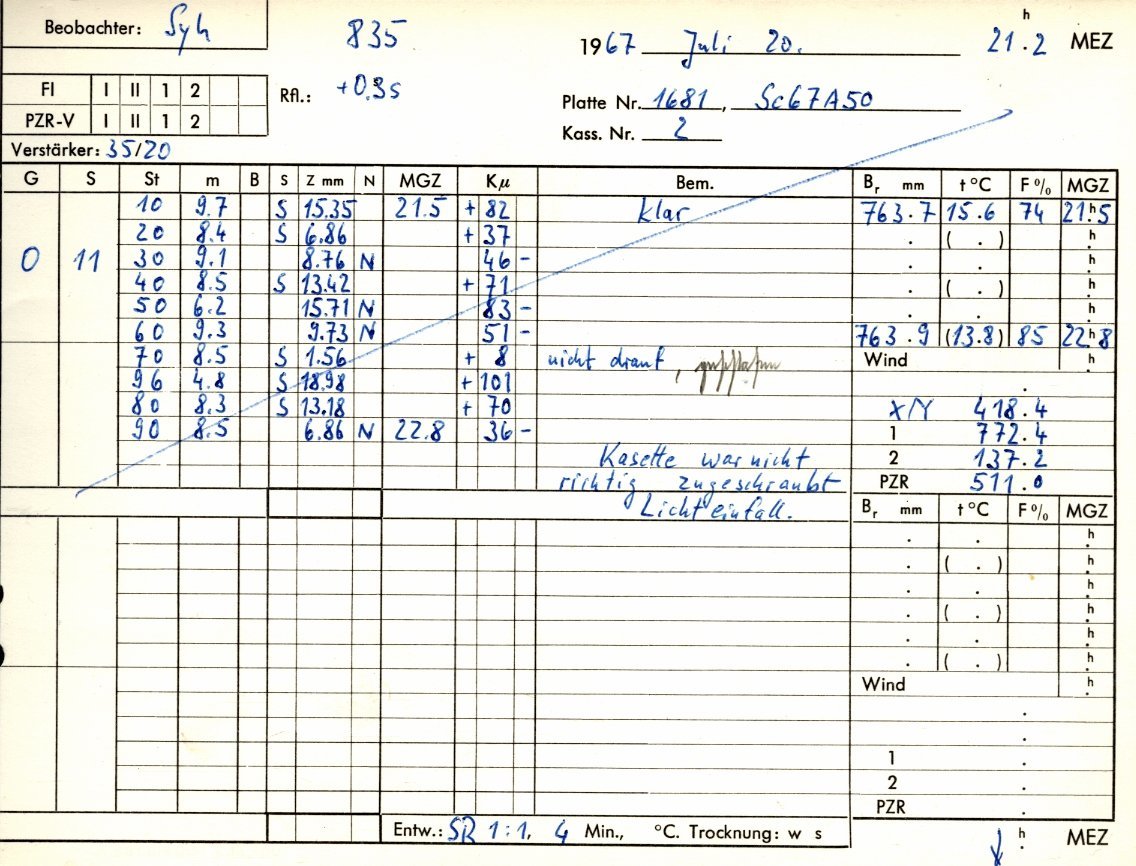 Beobachter: Syh 835 1967 Juli 20. 21h.2 MEZ
FI I II 1 2 Rfl.: +0.3s Platte Nr. 1681, Sc67A50
PZR-V I II 1 2 Kass. Nr. 2
Verstärker: 35/20
G S St m B S Z mm N MGZ Kμ Bem. Br mm t°C F% MGZ
10 9.7 S 15.35 21.5 + 82 klar 763.7 15.6 74 21h.5
20 8.4 S 6.86 + 37 . ( . ) h.
0 11 30 9.1 8.76 N 46 - . . h.
40 8.5 S 13.42 + 71 . ( . ) h.
50 6.2 15.71 N 83 - . . h.
60 9.3 9.73 N 51 - 763.9 (13.8) 85 22h.8
70 8.5 S 1.56 + 8 nicht drauf, Wind h.
96 4.8 S 18.98 + 101 .
80 8.3 S 13.18 + 70 X/Y 418.4
90 8.5 6.86 N 22.8 36 - 1 772.4
Kasette war nicht 2 137.2
richtig zugeschraubt PZR 511.0
Lichteinfall. Br mm t°C F% MGZ
. . h.
. ( . ) h.
. . h.
. ( . ) h.
. . h.
. ( . ) h.
Wind h.
.
.
1 .
2 .
PZR .
Entw.: SR 1:1, 4 Min., °C. Trocknung: w s h. MEZ